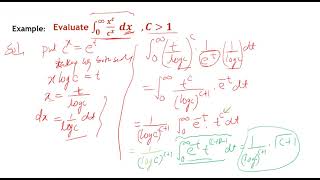 Example: Evaluate ∫₀^∞ x^c/c^x dx , C > 1
Sol. put c^x = e^t
taking log both sides
x log c = t
x = t/log c
dx = 1/log c dt
∫₀^∞ (t/log c)^c · 1/e^t (1/log c) dt
∫₀^∞ t^c/(log c)^(c+1) · e^-t · dt
1/(log c)^(c+1) ∫₀^∞ e^-t · t^c dt
= 1/(log c)^(c+1) ∫₀^∞ e^-t t^(c+1)-1 dt = 1/(log c)^(c+1) · Γc+1